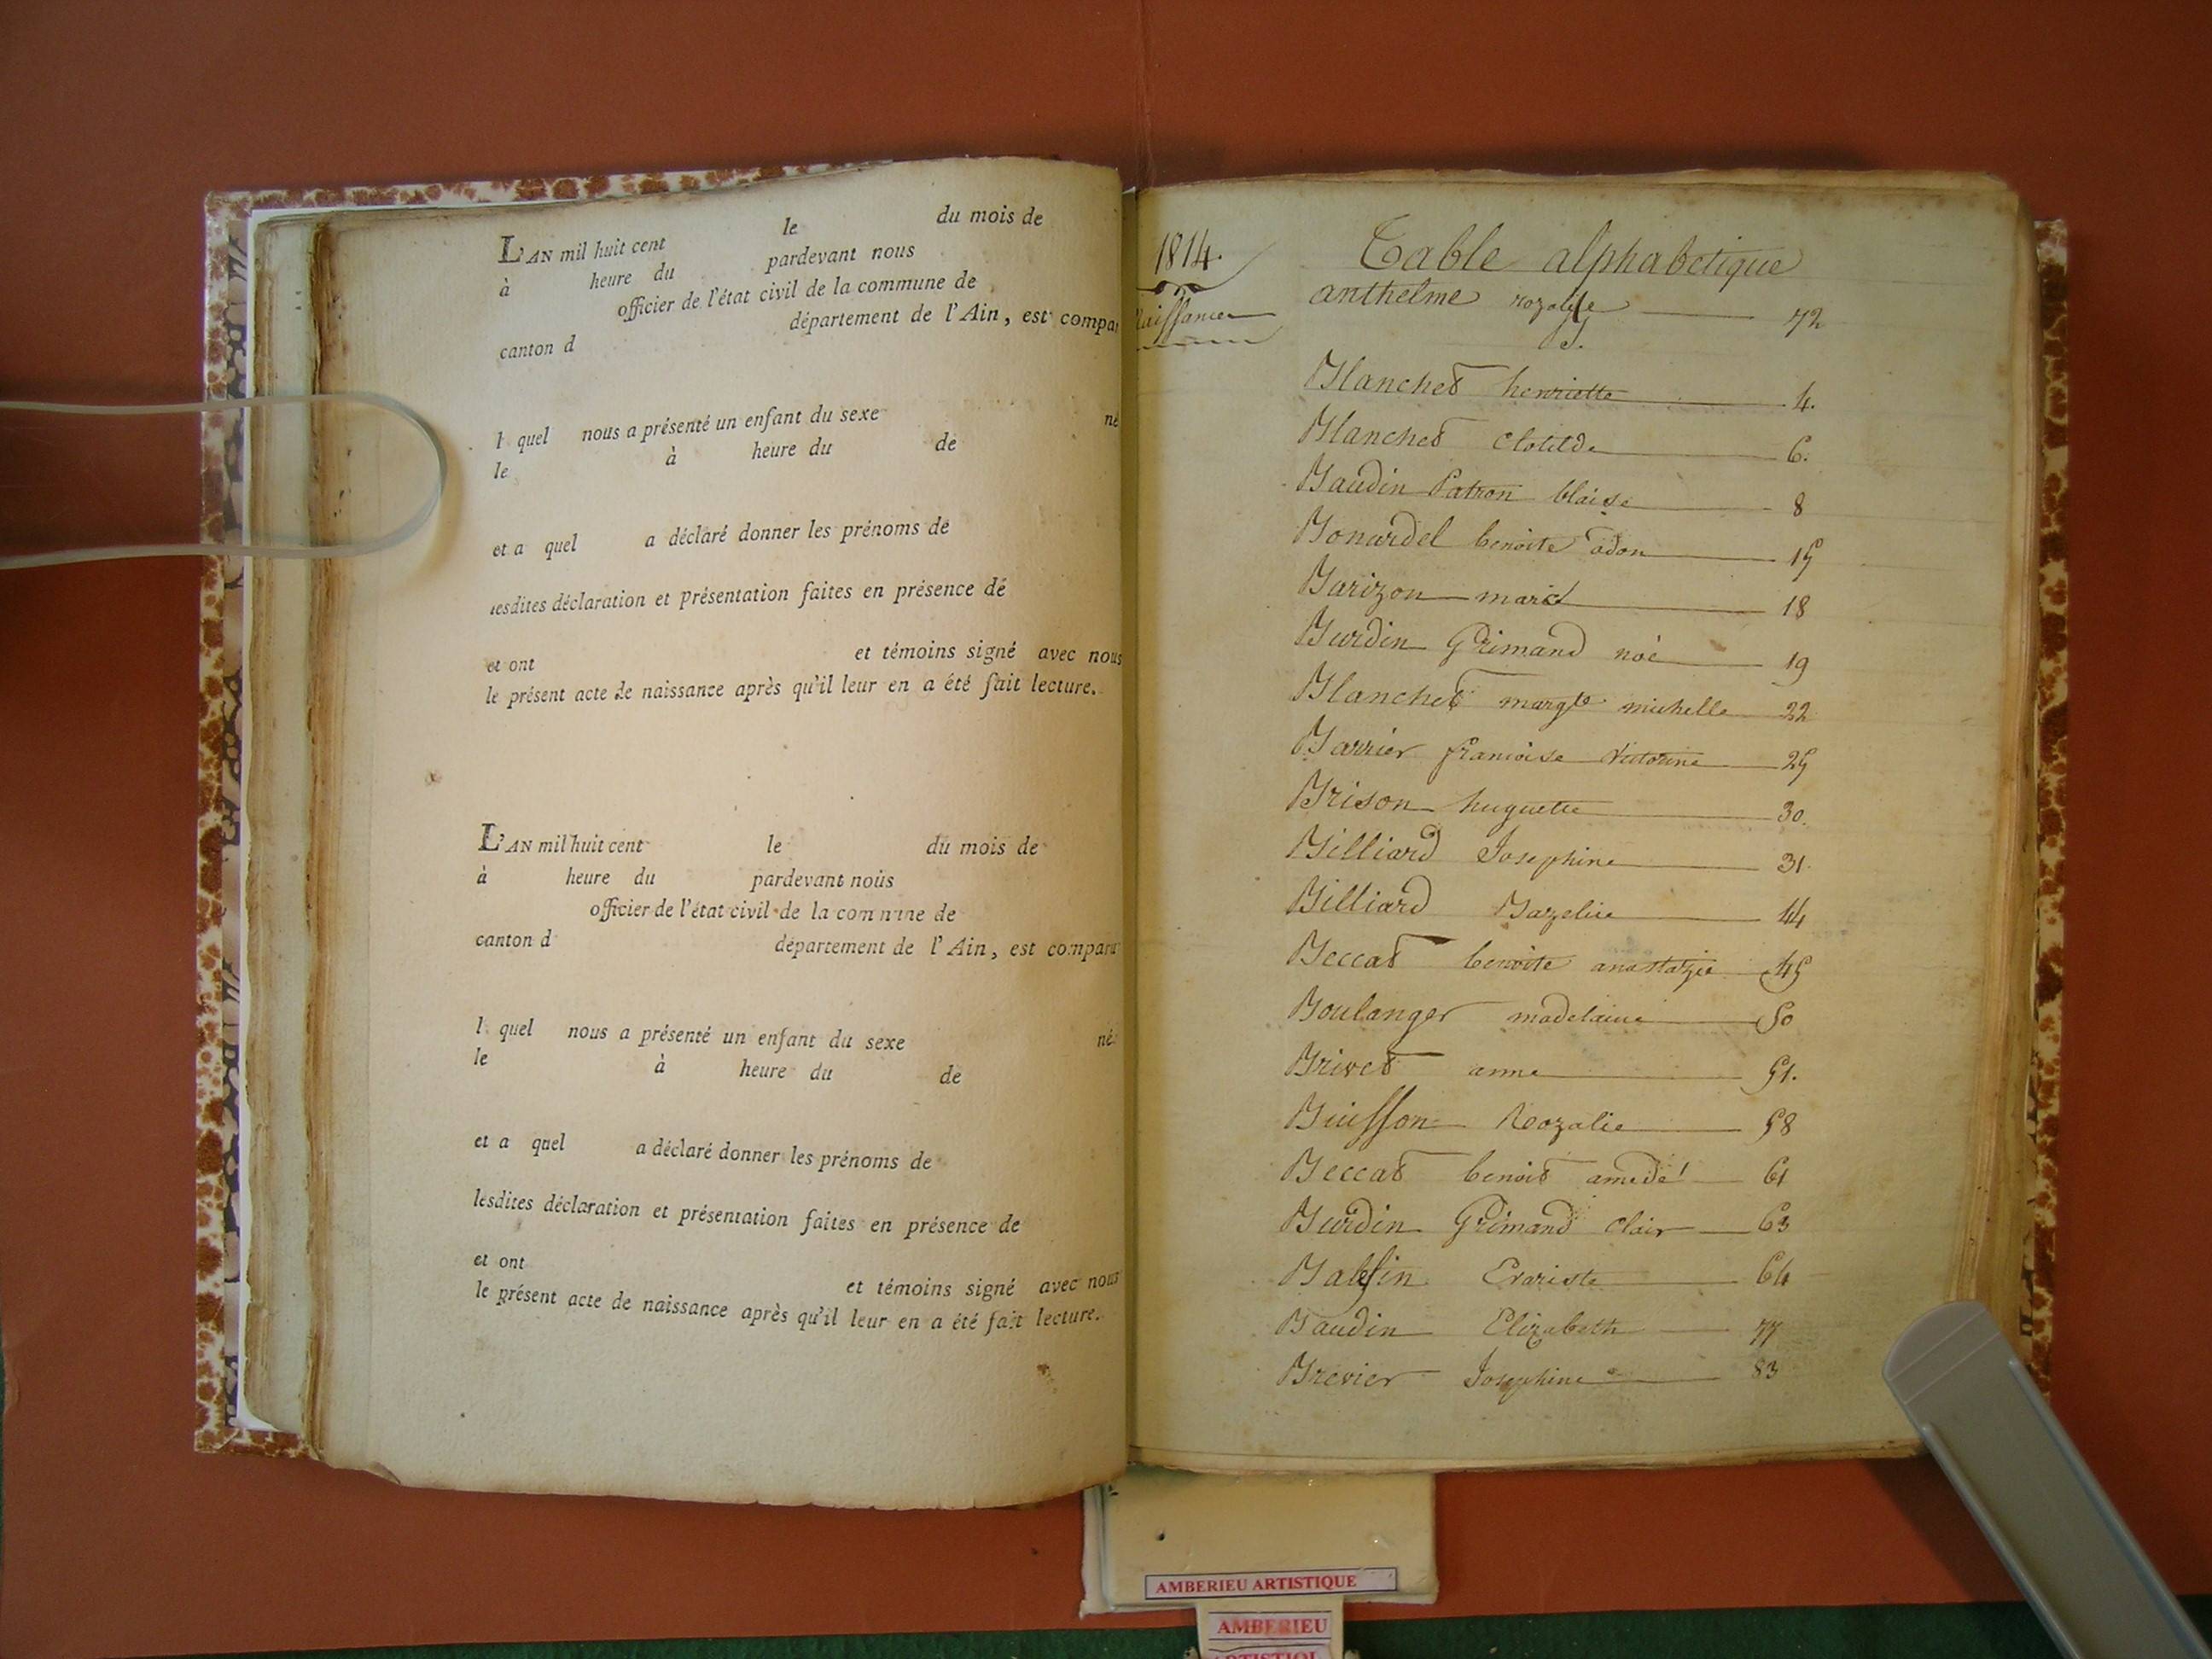 le du mois de
L'AN mil huit cent
à heure du pardevant nous
officier de l'état civil de la commune de
canton d département de l'Ain, est compar
l quel nous a présenté un enfant du sexe né
le à heure du de
et a quel a déclaré donner les prénoms de
lesdites déclaration et présentation faites en présence de
et ont et témoins signé avec nous
le présent acte de naissance après qu'il leur en a été fait lecture.
L'AN mil huit cent le du mois de
à heure du pardevant nous
officier de l'état civil de la commune de
canton d département de l'Ain, est comparu
l quel nous a présenté un enfant du sexe né
le à heure du de
et a quel a déclaré donner les prénoms de
lesdites déclaration et présentation faites en présence de
et ont et témoins signé avec nous
le présent acte de naissance après qu'il leur en a été fait lecture.
1814.
Naissances
Table alphabetique
anthelme rozalie 72
B.
Blanchet henriette 4.
Blanchet Clotilde 6.
Baudin Patron blaise 8
Bonardel benoite odon 15
Barizon marie 18
Burdin Grimand noé 19
Blanchet margte michelle 22
Barrier francoise Victorine 25
Brison huguette 30.
Billiard Josephine 31.
Billiard 44
Beccat benoite anastazie 45
Boulanger madelaine 50
Brivet anne 51.
Buisson Rozalie 58
Beccat benoit amedé 61
Burdin Grimand Clair 63
Evariste 64
Baudin Elizabeth 77
Brevier Josephine 83
AMBERIEU ARTISTIQUE
AMBERIEU
ARTISTIQUE